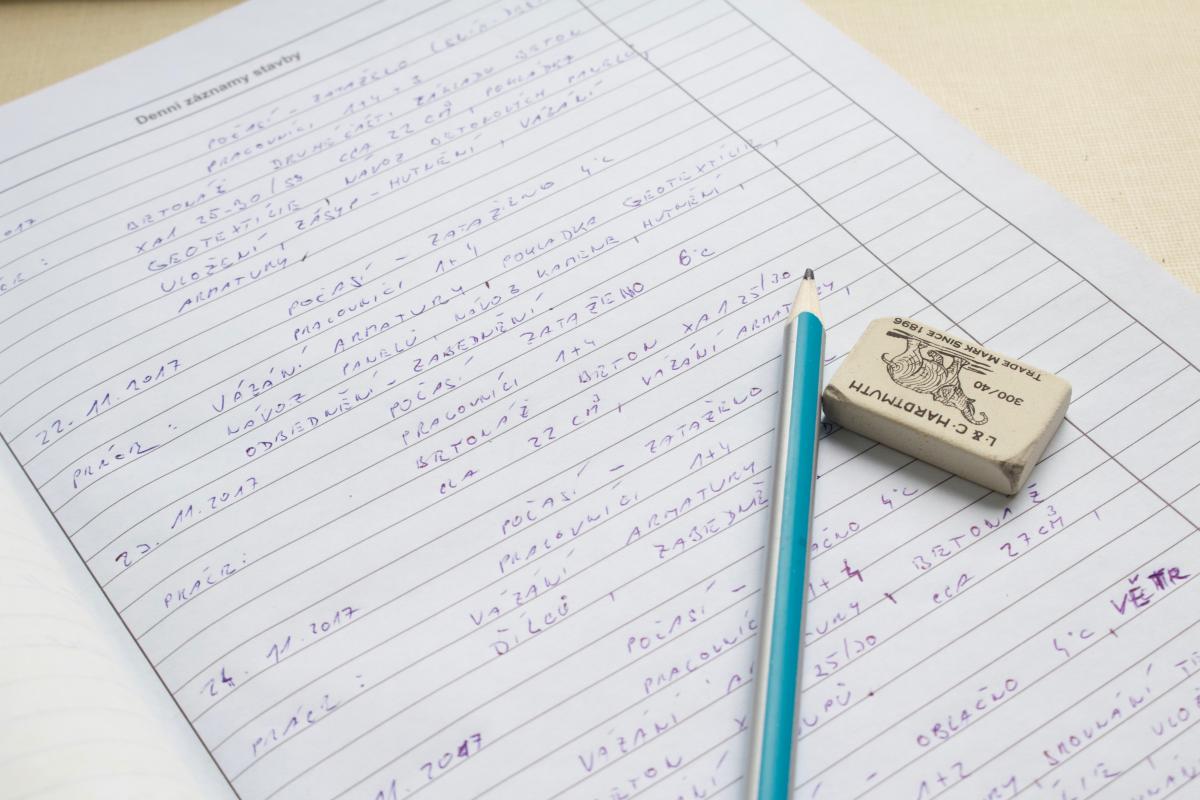 Denní záznamy stavby
POČASÍ - ZATAŽENO
PRACOVNÍCI 1+4+3
BETONÁŽ DRUHÉ ČÁSTI ZÁKLADU BETON
XA1 25-30/S3 CCA 22 CM³, POKLÁDKA
GEOTEXTÍLIE, NÁVOZ BETONOVÝCH PANELŮ,
ULOŽENÍ, ZÁSYP - HUTNĚNÍ, VÁZÁNÍ
ARMATURY
22. 11. 2017 POČASÍ - ZATAŽENO 4°C
PRACOVNÍCI 1+4
PRÁCE: VÁZÁNÍ ARMATURY, POKLÁDKA GEOTEXTÍLIE,
NÁVOZ PANELŮ, NÁVOZ KAMENE, HUTNĚNÍ,
ODBEDNĚNÍ - ZABEDNĚNÍ
23. 11. 2017 POČASÍ ZATAŽENO 6°C
PRACOVNÍCI 1+4
PRÁCE: BETONÁŽ BETON XA1 25/30
CCA 22 CM³, VÁZÁNÍ ARMATURY,
24. 11. 2017 POČASÍ - ZATAŽENO
PRACOVNÍCI 1+4
PRÁCE: VÁZÁNÍ ARMATURY
DÍLCŮ, ZABEDNĚ
11. 2017 POČASÍ - 4°C
PRACOVNÍC 1+4
VÁZÁNÍ BETONÁŽ
BETON 25/30 CCA 27 CM³,
OBLAČNO 4°C, VĚTR
1+2
SROVNÁNÍ
L.&C.HARDTMUTH
300/40
TRADE MARK SINCE 1896